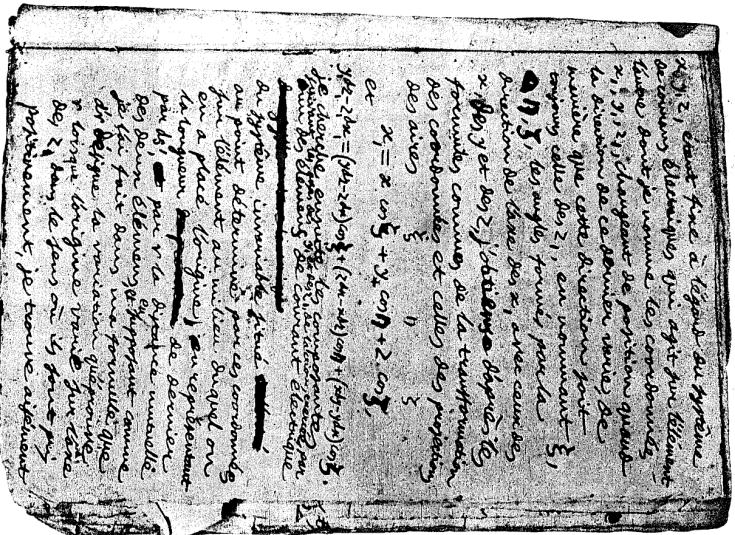 x, y, z, étant fixe à l'égard du système
de courans électriques qui agit sur l'élément
l'autre dont je nomme les coordonnées
x₁, y₁, z₁, changeant de position quand
la direction de ce dernier varie, de
manière que cette direction soit
toujours celle des z₁, en nommant ξ,
η, ζ, les angles formés par la
direction de l'axe des z₁ avec ceux des
x, des y et des z, j'obtiens d'après les
formules connues de la transformation
des coordonnées et celles des projections
des aires
z₁ = x cos ξ + y cos η + z cos ζ,
et
je cherche ensuite les composantes
de courant électrique
du système invariable situé
au point déterminé par ces coordonnées
sur l'élément au milieu duquel on
en a placé l'origine, en représentant
la longueur de ce dernier
par ds', et par r la distance mutuelle
des deux élémens, et supposant comme
je l'ai fait dans ma formule que
dr désigne la variation qu'éprouve
r lorsque l'origine varie sur l'axe
des z₁ dans le sens où ils sont pris
positivement, je trouve aisément